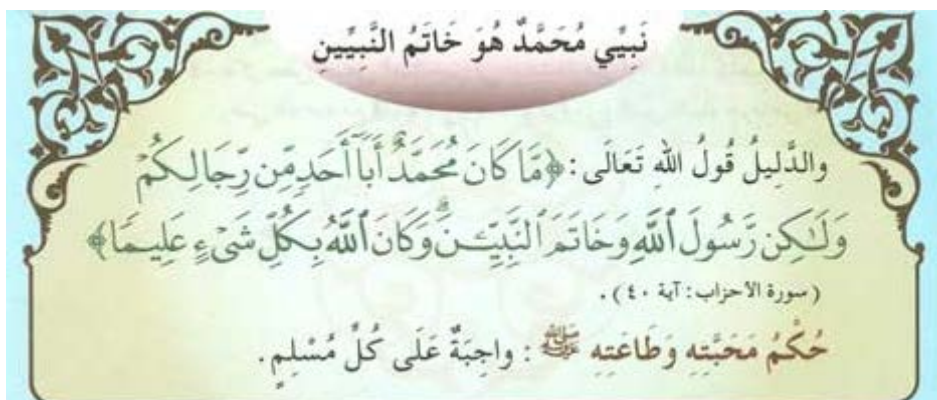 نَبِيِّي مُحَمَّدٌ هُوَ خَاتَمُ النَّبِيِّينِ
والدَّلِيلُ قَولُ اللهِ تَعَالَى: ﴿مَّا كَانَ مُحَمَّدٌ أَبَآ أَحَدٍ مِّن رِّجَالِكُمْ
وَلَٰكِن رَّسُولَ ٱللَّهِ وَخَاتَمَ ٱلنَّبِيِّـۧنَ ۗ وَكَانَ ٱللَّهُ بِكُلِّ شَىْءٍ عَلِيمًا﴾
(سورة الأحزاب: آية ٤٠).
حُكْمُ مَحَبَّتِهِ وَطَاعَتِهِ ﷺ: واجِبَةٌ عَلَى كُلِّ مُسْلِمٍ.